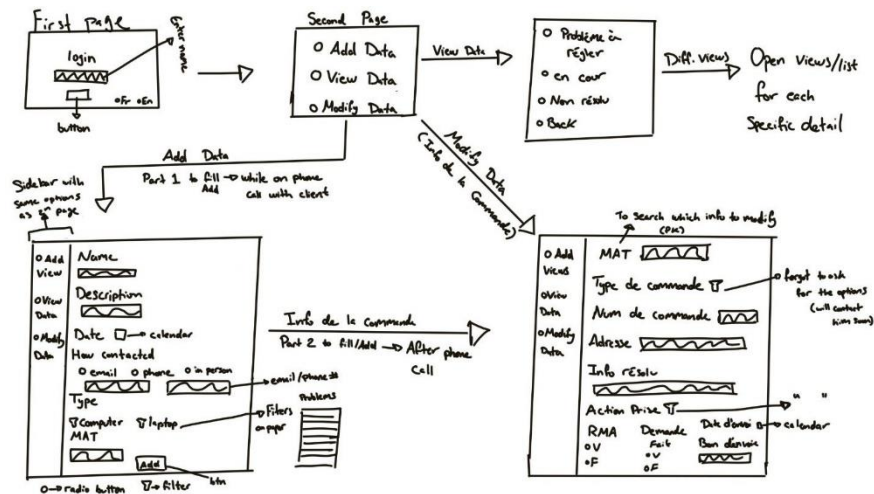 First page
login
Enter name
button
Fr
En
Second Page
Add Data
View Data
Modify Data
View Data
Problème à
régler
en cour
Non résolu
Back
Diff. views
Open views/list
for each
Specific detail
Add Data
Part 1 to fill → while on phone
Add
call with client
Modify Data
(Info de la Commande)
Sidebar with
same options
as 2nd page
Add
View
View
Data
Modify
Data
Name
Description
Date
calendar
How contacted
email
phone
in person
email/phone #
Type
Computer
laptop
Filters
on paper
Problems
MAT
Add
btn
radio button
filter
Info de la Commande
Part 2 to fill/Add → After phone
Call
To search which info to modify
(PK)
Add
Views
View
Data
Modify
Data
MAT
Type de commande
forgot to ask
for the options
(will contact
him soon)
Num de commande
Adresse
Info résolu
Action Prise
" "
RMA
V
F
Demande
Fait
V
F
Date d'envoi
calendar
Bon d'envoie